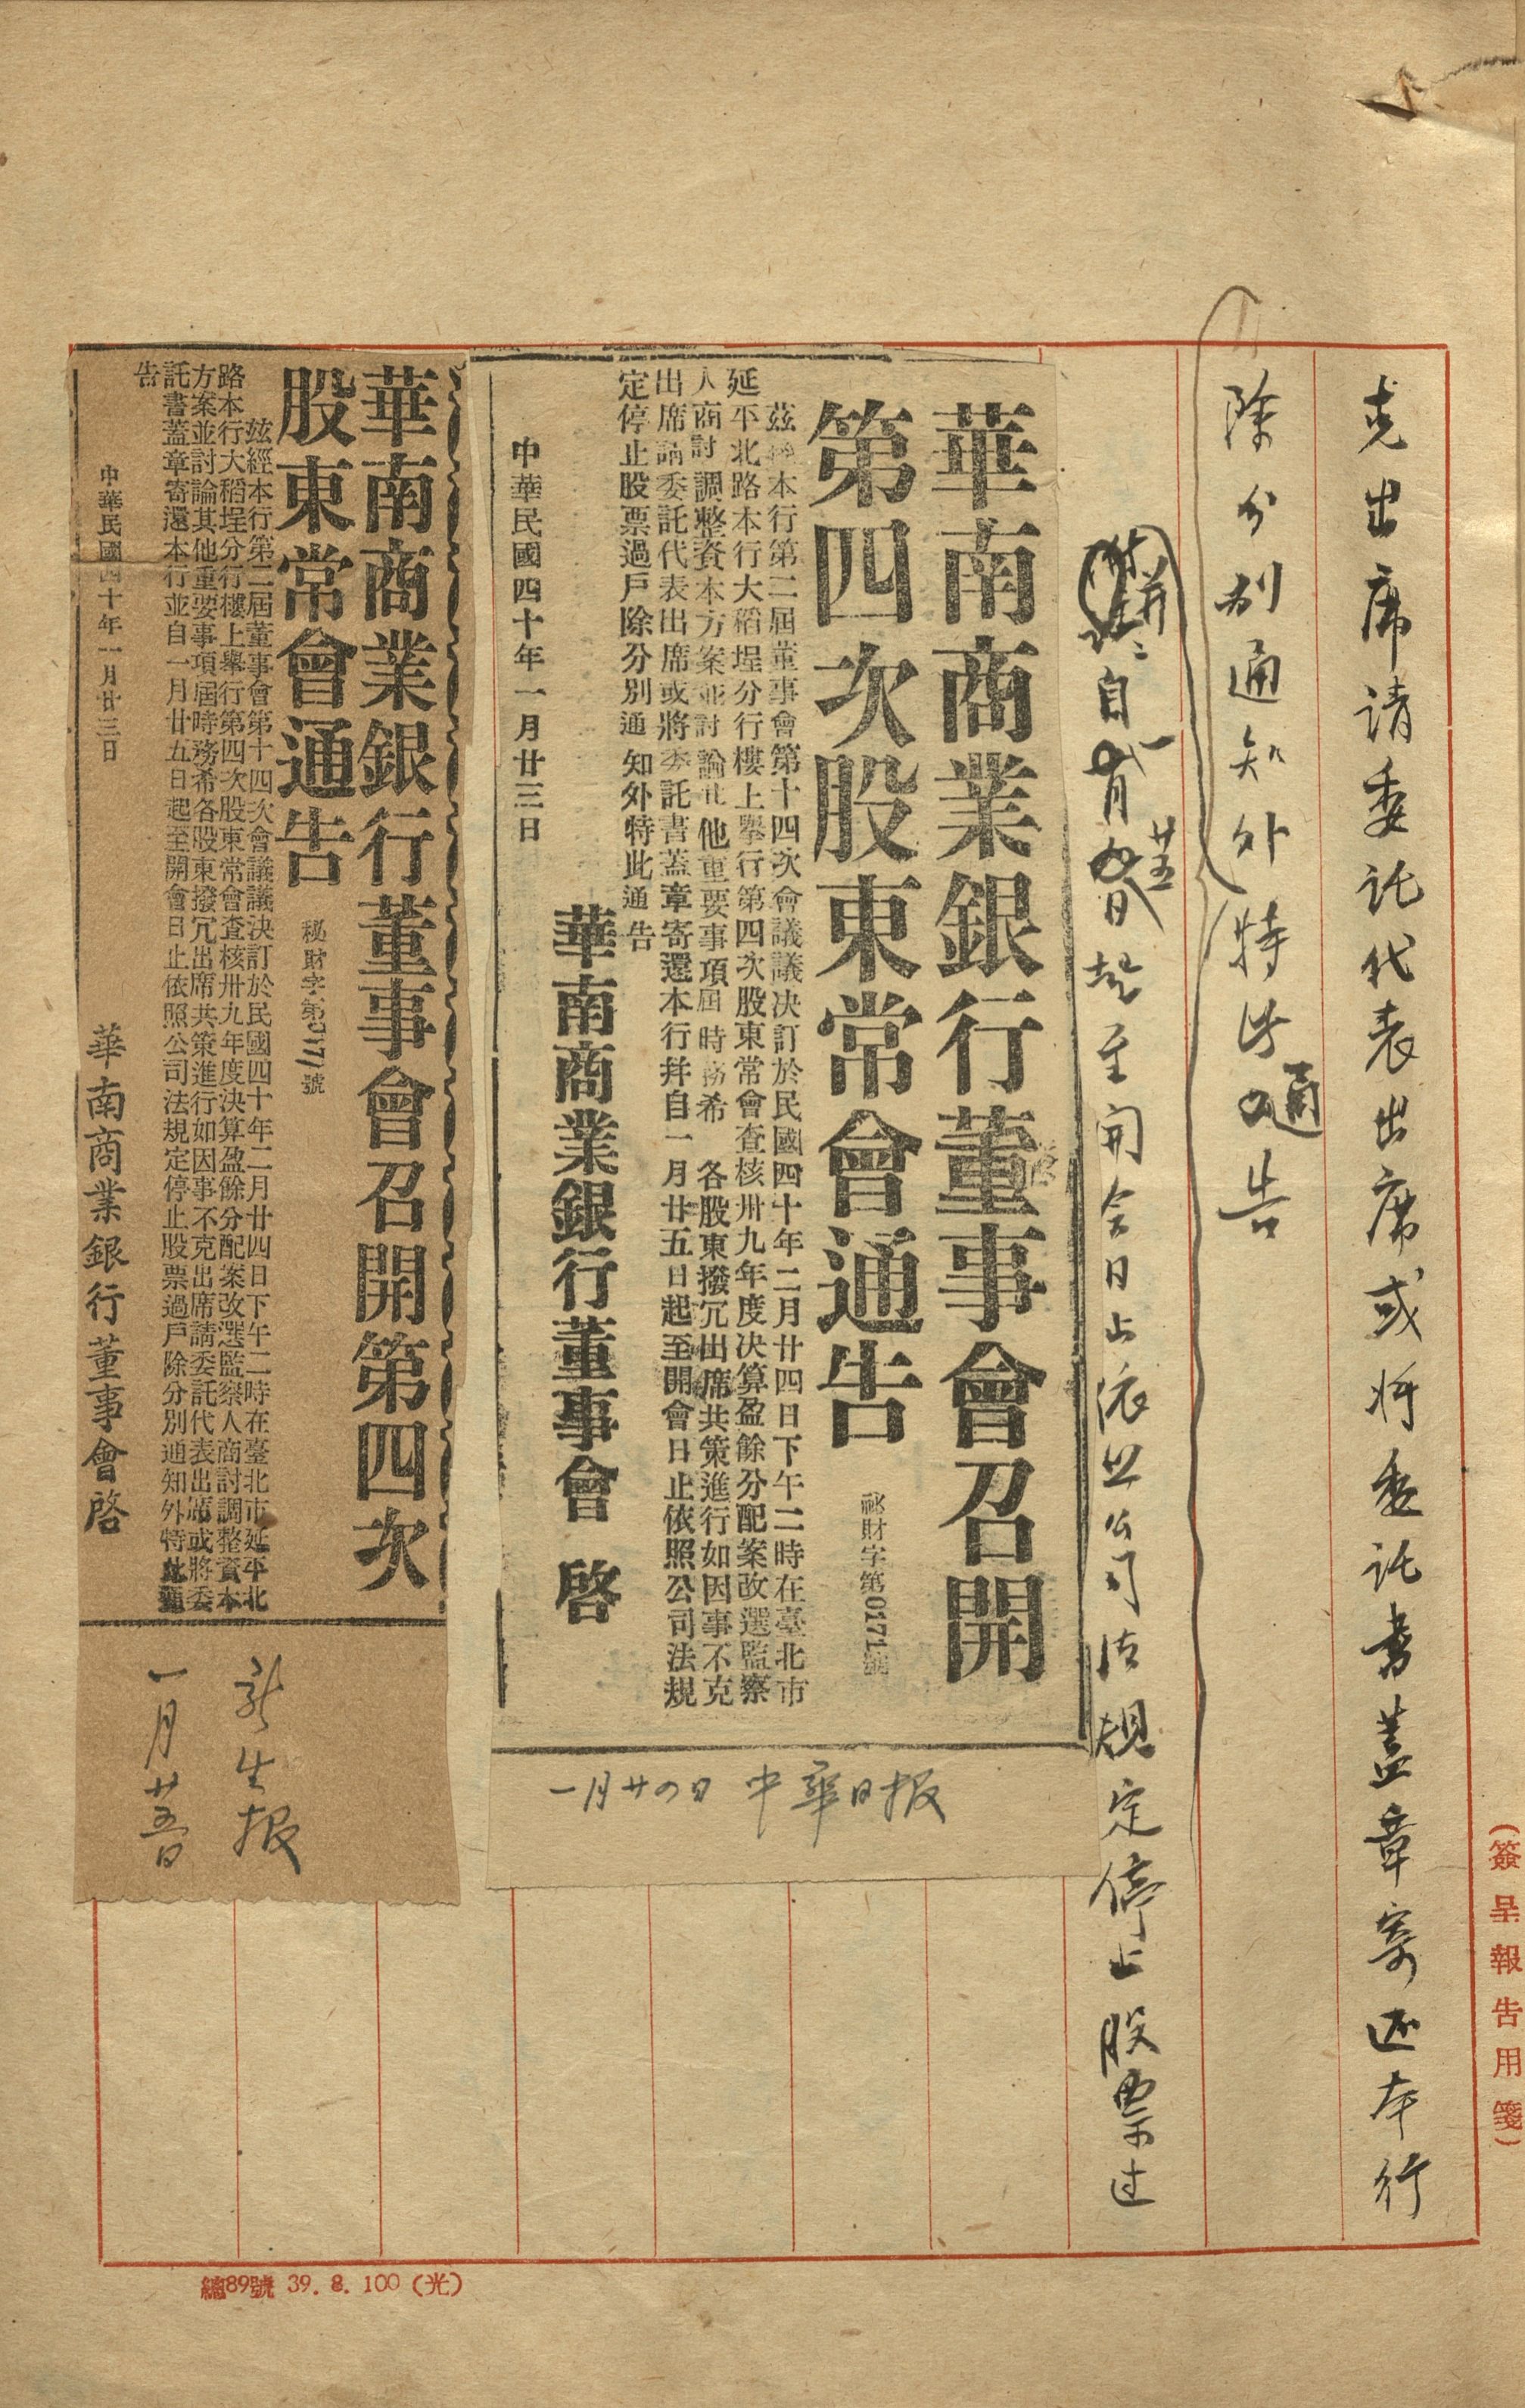 克出席请委託代表出席或将委託書蓋章寄还本行
除分别通知外特此通告
并自一月廿五日起至開会日止依照公司法規定停止股票过
華南商業銀行董事會召開
第四次股東常會通告
秘財字第0171號
茲經本行第二屆董事會第十四次會議議决訂於民國四十年二月廿四日下午二時在臺北市
延平北路本行大稻埕分行樓上舉行第四次股東常會查核卅九年度决算盈餘分配案改選監察
人商討調整資本方案並討論其他重要事項屆時務希各股東撥冗出席共策進行如因事不克
出席請委託代表出席或將委託書蓋章寄還本行幷自一月廿五日起至開會日止依照公司法規
定停止股票過戶除分別通知外特此通告
華南商業銀行董事會啓
中華民國四十年一月廿三日
一月廿四日中華日报
華南商業銀行董事會召開第四次
股東常會通告
秘財字第0171號
茲經本行第二屆董事會第十四次會議議决訂於民國四十年二月廿四日下午二時在臺北市延平北
路本行大稻埕分行樓上舉行第四次股東常會查核卅九年度决算盈餘分配案改選監察人商討調整資本
方案並討論其他重要事項屆時務希各股東撥冗出席共策進行如因事不克出席請委託代表出席或將委
託書蓋章寄還本行並自一月廿五日起至開會日止依照公司法規定停止股票過戶除分別通知外特此通
告
中華民國四十年一月廿三日
華南商業銀行董事會啓
新生报
一月廿五日
(簽呈報告用箋)
總89號 39. 8. 100 (光)